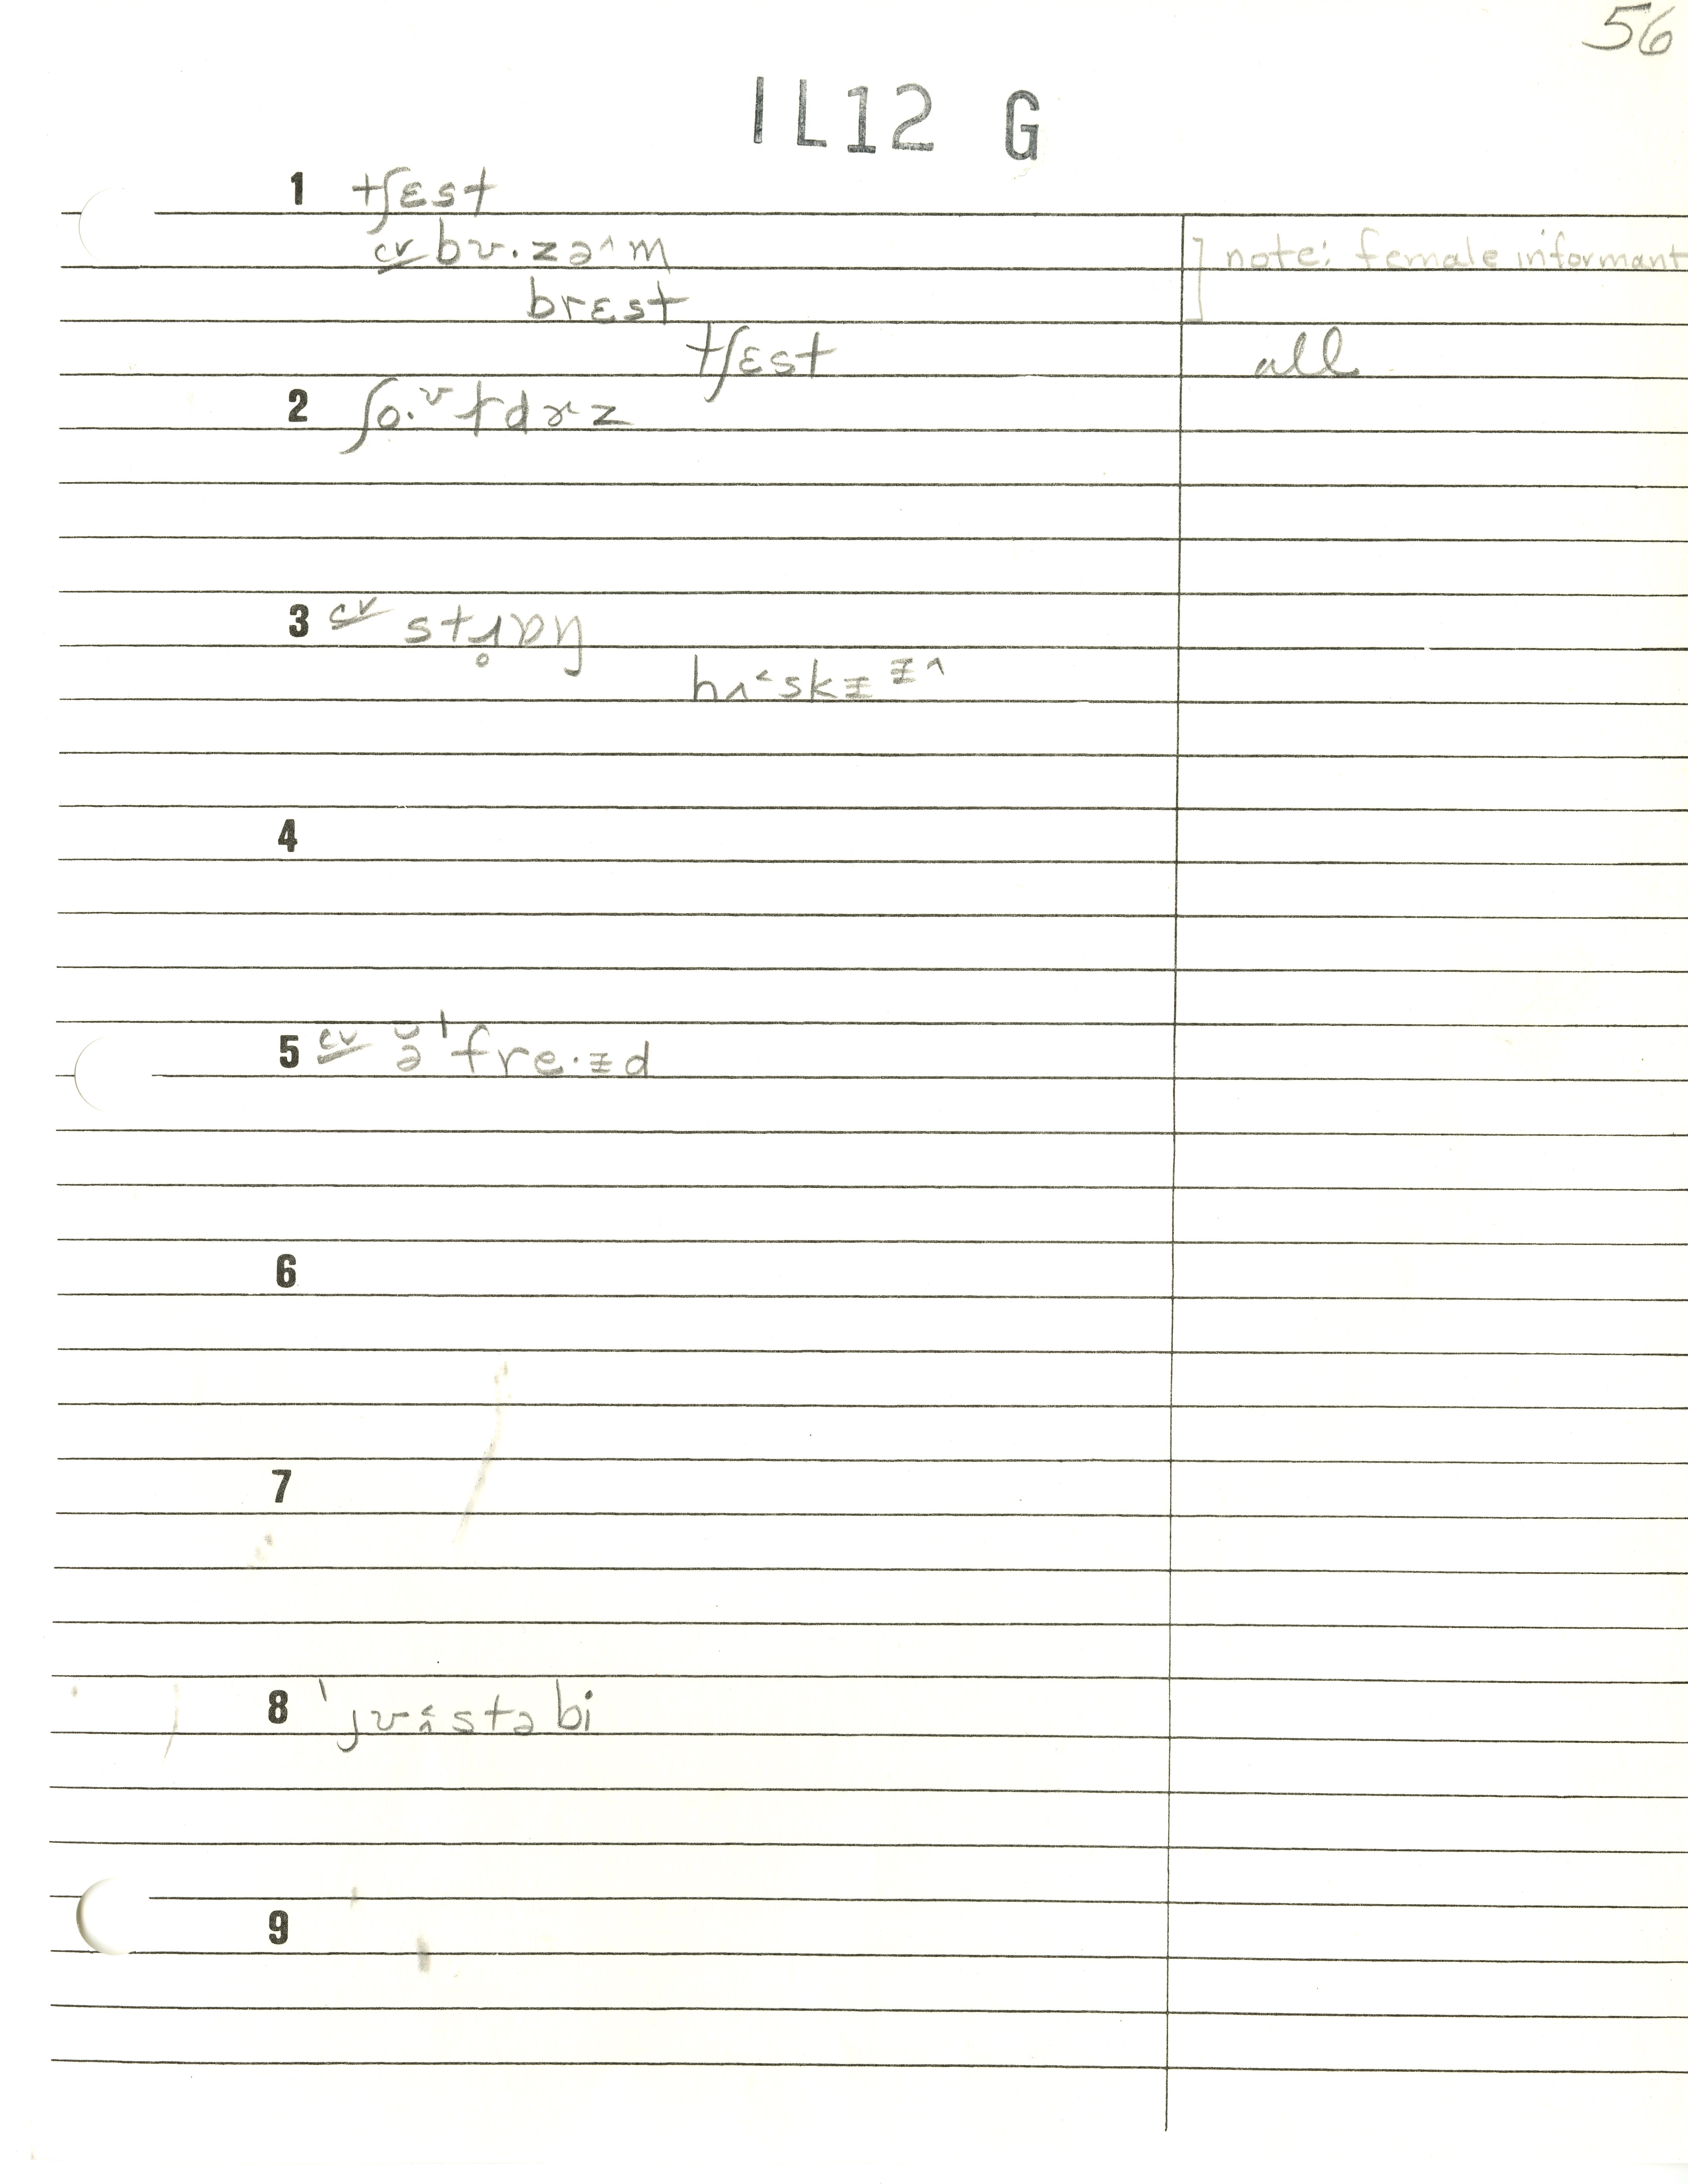 56
IL12 G
1 tʃɛst
cv bʊ·zə^m ] note: female informant
brɛst
tʃɛst all
2 ʃo·ᶷɫdɚz
3 cv stɹ̥ɒŋ
hʌ˂skɪ ɪ^
4
5 cv ə̆ˈfre·ɪd
6
7
8 ˈjʊ stəbi
9